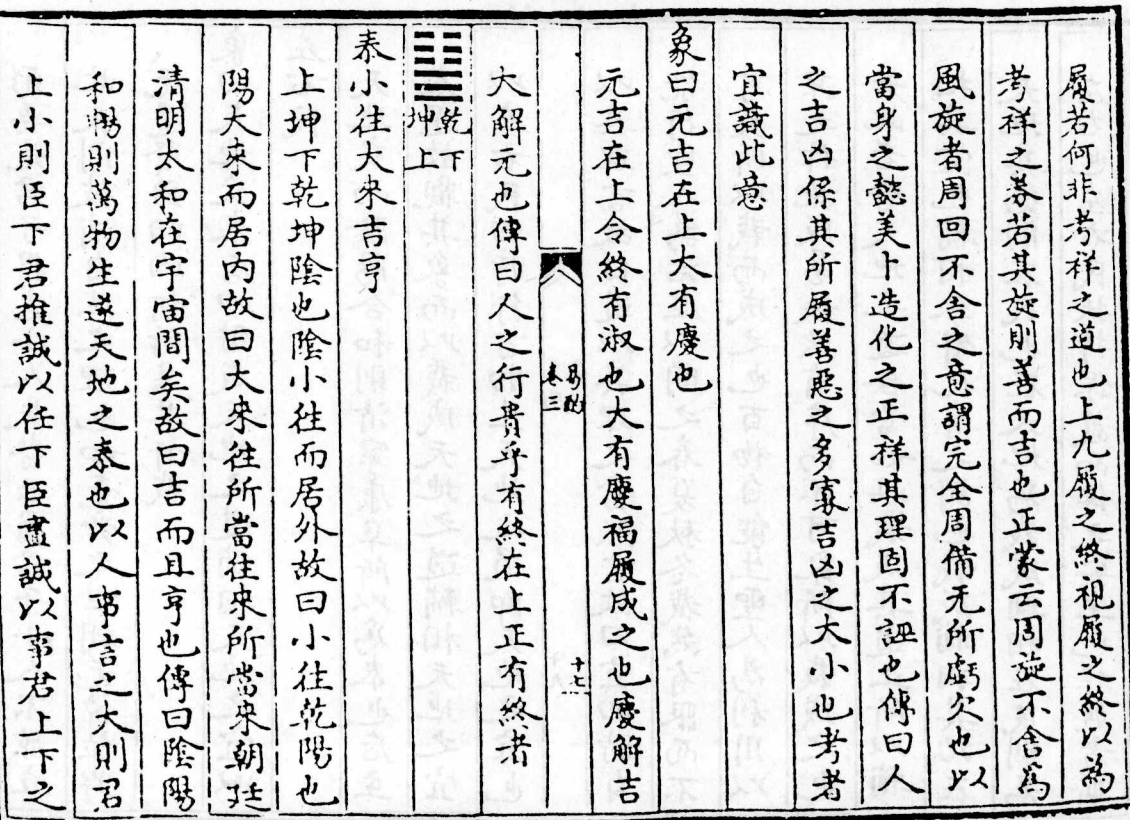 履若何非考祥之道也上九履之終視履之終以為
考祥之券若其旋則善而吉也正蒙云周旋不舍為
風旋者周回不舍之意謂完全周備无所虧欠也以
當身之懿美卜造化之正祥其理固不誣也傳曰人
之吉凶係其所履善惡之多寡吉凶之大小也考者
宜識此意
象曰元吉在上大有慶也
元吉在上令終有淑也大有慶福履成之也慶解吉
易酌 卷三 十七
大解元也傳曰人之行貴乎有終在上正有終者
乾下
坤上
泰小往大來吉亨
上坤下乾坤陰也陰小往而居外故曰小往乾陽也
陽大來而居内故曰大來往所當往來所當來朝廷
清明太和在宇宙間矣故曰吉而且亨也傳曰陰陽
和暢則萬物生遂天地之泰也以人事言之大則君
上小則臣下君推誠以任下臣盡誠以事君上下之